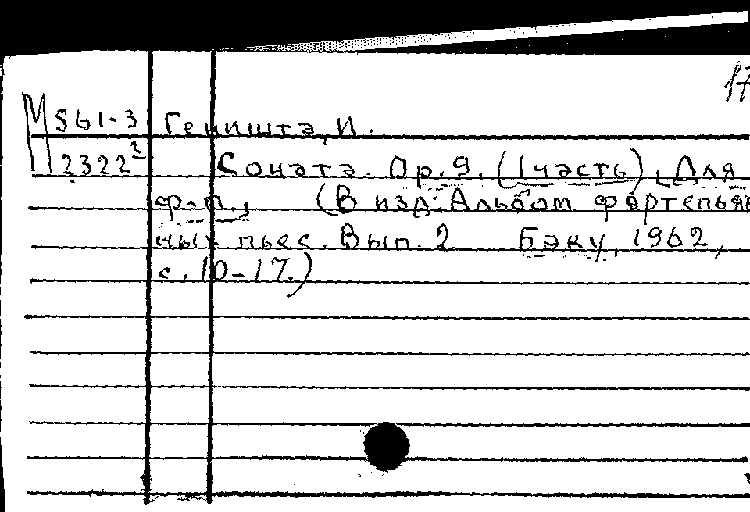 17
М 561-3 Геништа, И.
2322² Соната. Ор. 9. (1 часть), Для
ф-п., (В изд: Альбом фортепьян
ных пьес. Вып. 2 Баку, 1962,
с. 10-17.)